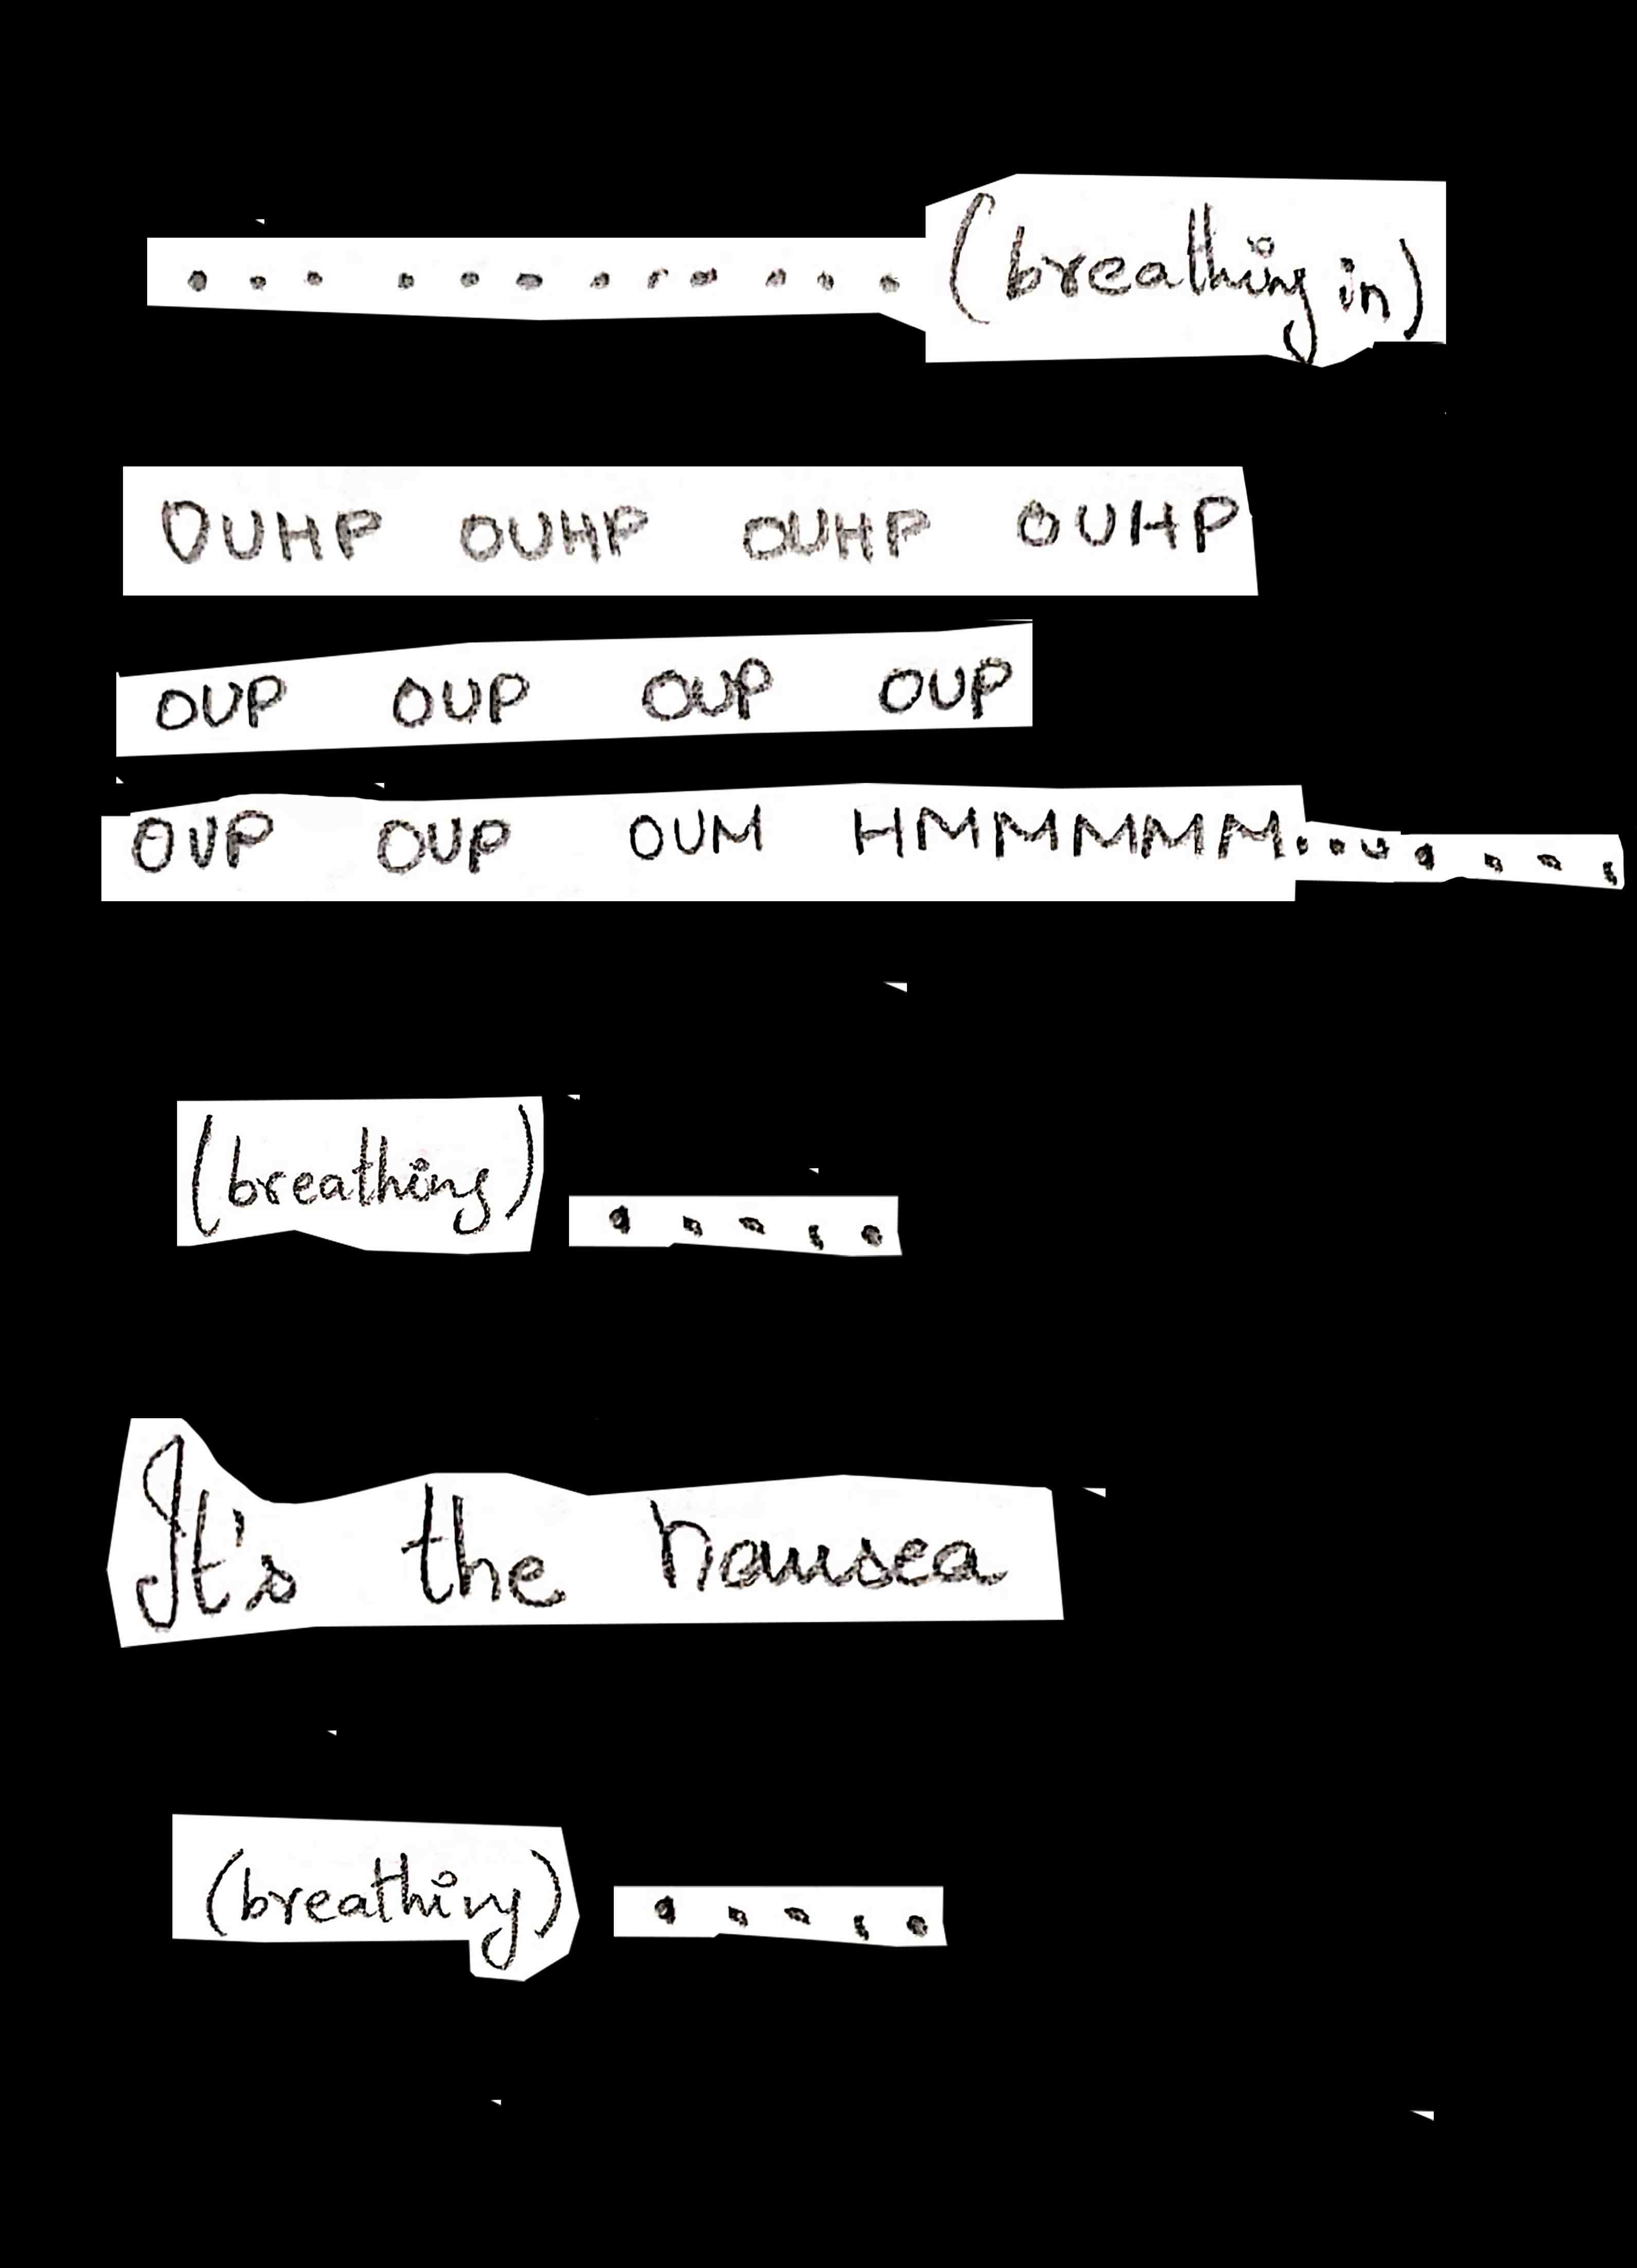 . . . . . . . . . . . . (breathing in)
OUHP OUHP OUHP OUHP
OUP OUP OUP OUP
OUP OUP OUM HMMMMM........
(breathing) . . . . .
It's the nausea
(breathing) . . . . .